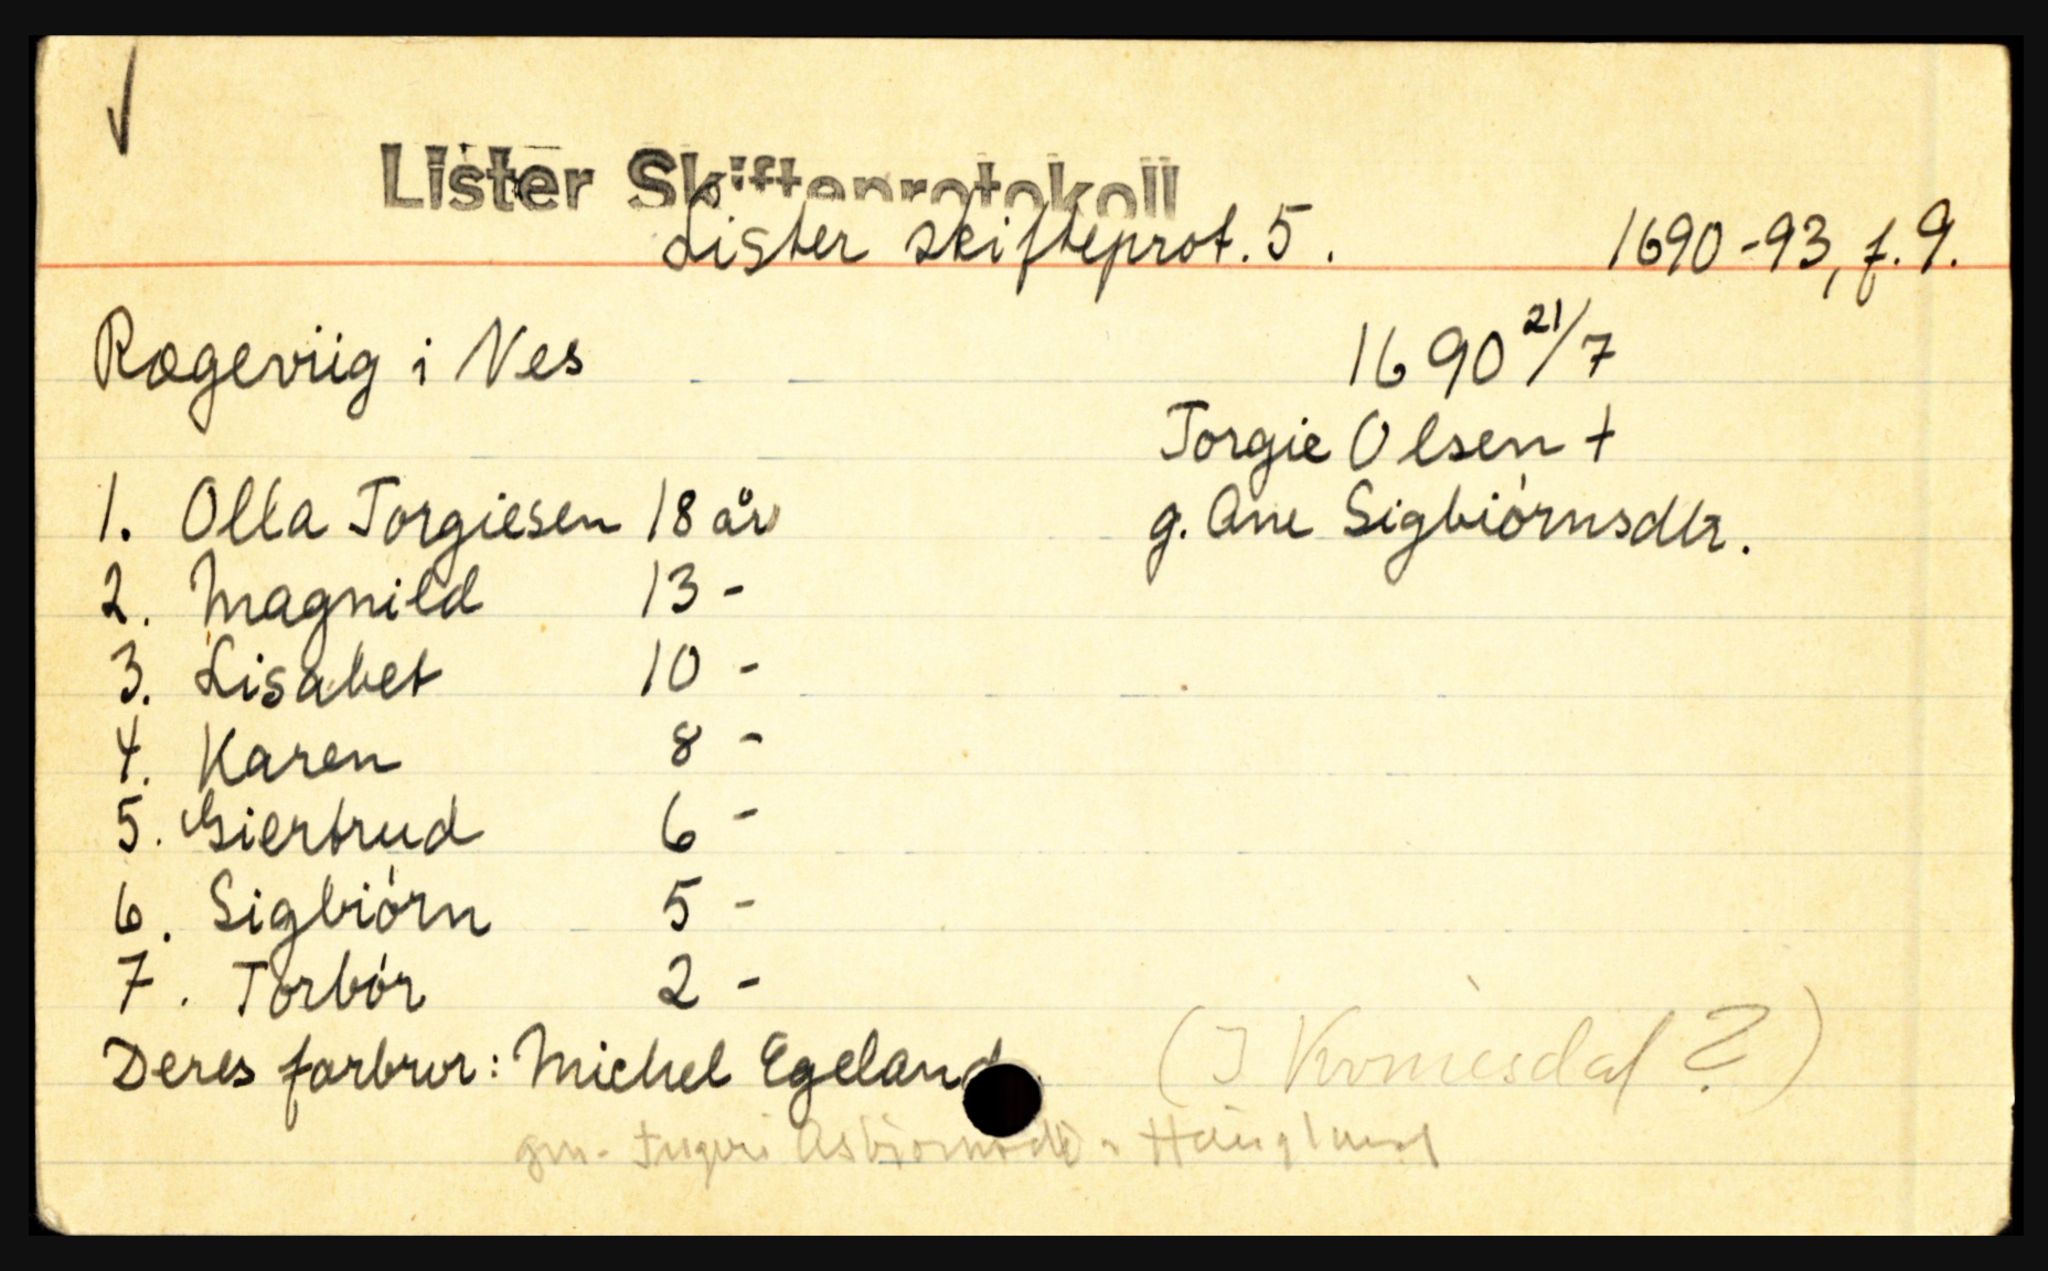 Lister Skifteprotokoll
Lister skifteprot. 5. 1690-93, f. 9.
Rægeviig i Nes 1690 21/7
Torgie Olsen †
1. Olla Torgiesen 18 år g. Ane Sigbiórnsdtr.
2. Magnild 13 -
3. Lisabet 10 -
4. Karen 8 -
5. Giertrud 6 -
6. Sigbiórn 5 -
7. Torbór 2 -
Deres farbror: Michel Egeland. (I Kvinesdal ?)
gm. Inger Asbjørnsdtr Haugland